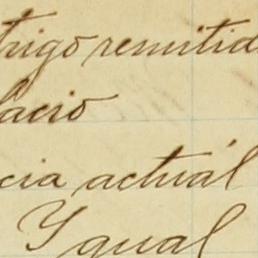 trigo remitid
lacio
cia actuál
Ygual